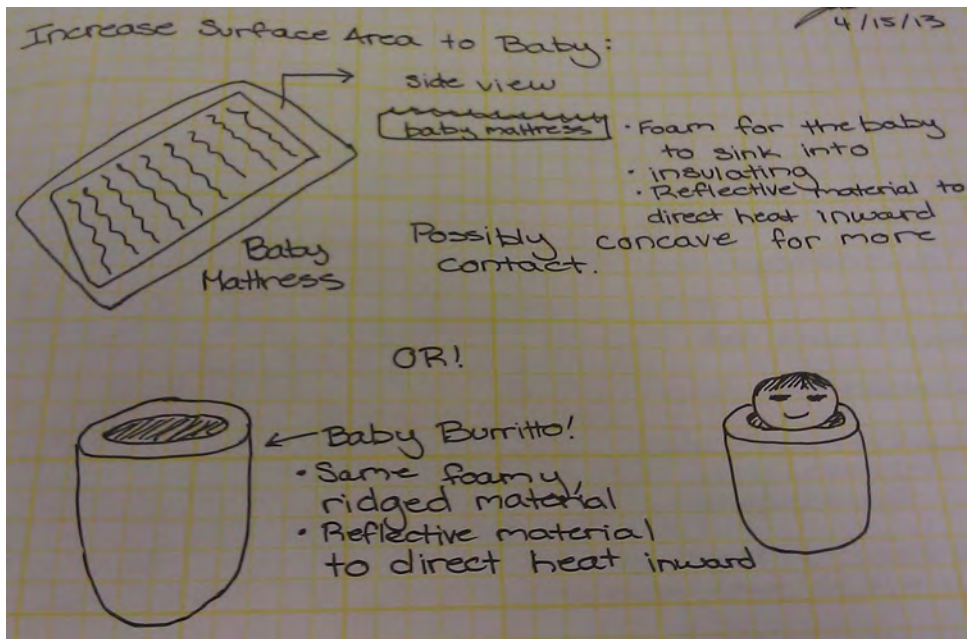 4/15/13
Increase Surface Area to Baby:
side view
baby mattress
• Foam for the baby
to sink into
• insulating
• Reflective material to
direct heat inward
Possibly concave for more
contact.
Baby
Mattress
OR!
Baby Burritto!
• Same foamy,
ridged material
• Reflective material
to direct heat inward